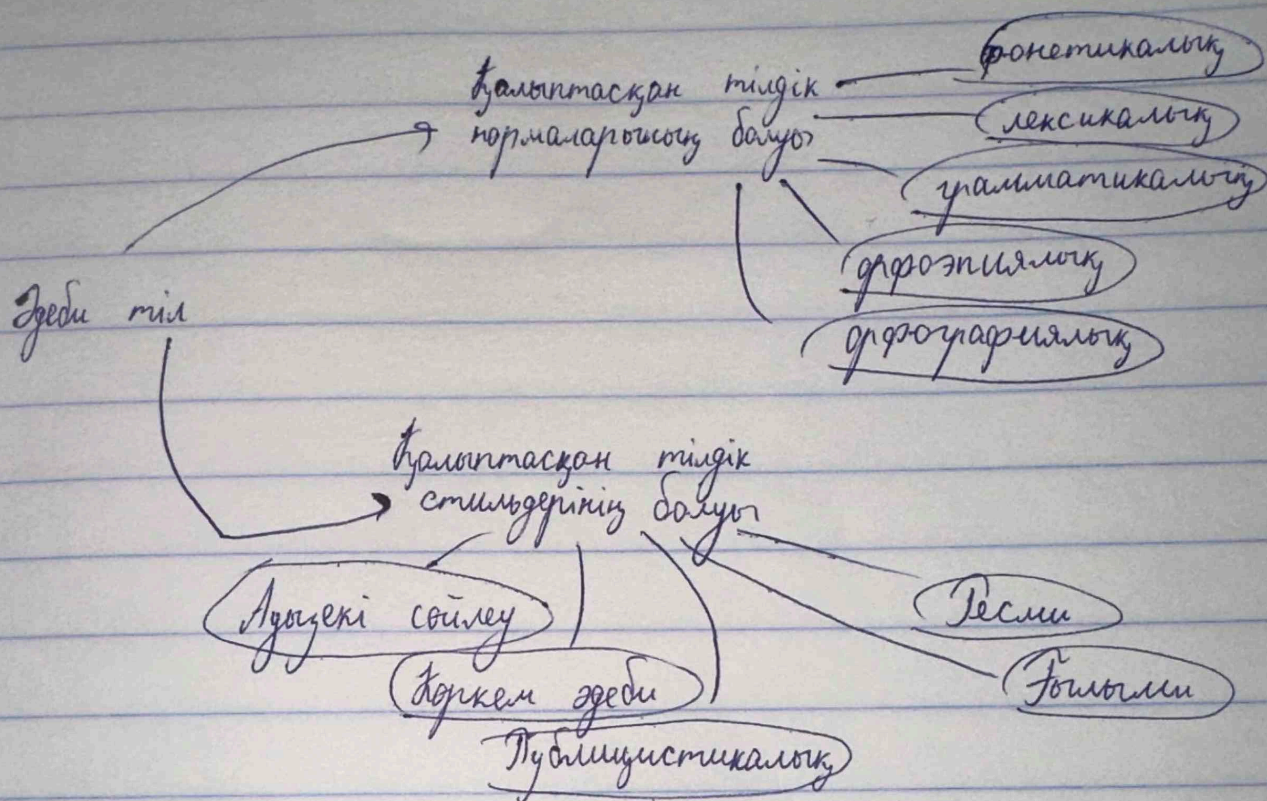 Қалыптасқан тілдік
нормаларының болуы
фонетикалық
лексикалық
грамматикалық
орфоэпиялық
орфографиялық
Әдеби тіл
Қалыптасқан тілдік
стильдерінің болуы
Ауызекі сөйлеу
Көркем әдеби
Публицистикалық
Ресми
Ғылыми